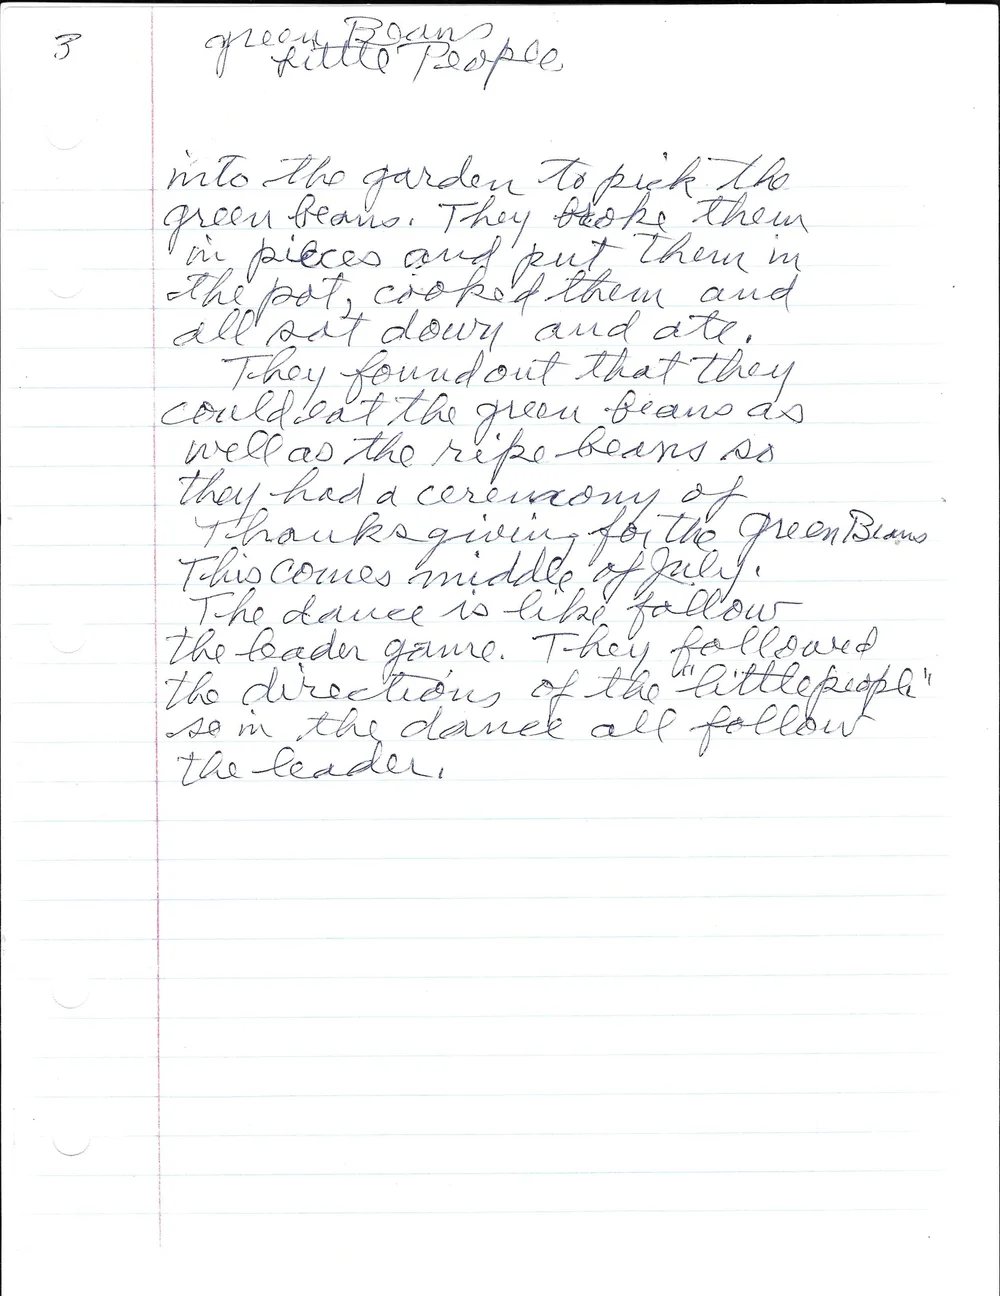 3
green Beans
Little People
into the garden to pick the
green beans. They broke them
in pieces and put them in
the pot, cooked them and
all sat down and ate.
They found out that they
could eat the green beans as
well as the ripe beans so
they had a ceremony of
Thanksgiving for the green Beans
This comes middle of July.
The dance is like follow
the leader game. They followed
the directions of the "little people"
so in the dance all follow
the leader.